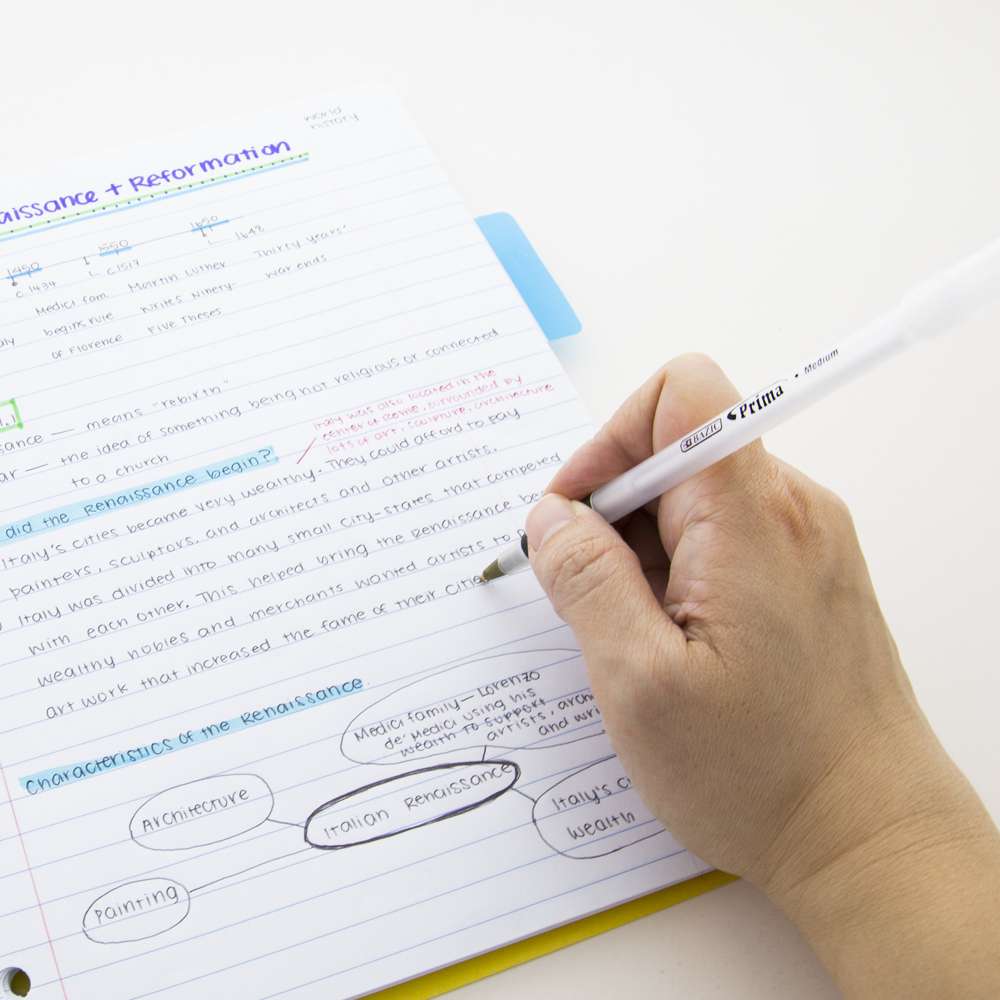 world
history
aissance + Reformation
1450 1550 1650
c.1434 c1517 1648
Medici fam. Martin Luther Thirty years'
aly begins rule writes Ninety- war ends
of Florence Five Theses
sance — means "rebirth"
ar — the idea of something being not religious or connected
to a church
Italy was also located in the
center of Rome, surrounded by
lots of art, sculpture, architecture
did the Renaissance begin?
Italy's cities became very wealthy. They could afford to pay
painters, sculptors, and architects and other artists.
Italy was divided into many small city-states that competed
with each other. This helped bring the Renaissance bec
wealthy nobles and merchants wanted artists to p
art work that increased the fame of their citie
Characteristics of the Renaissance
Medici family — Lorenzo
de' Medici using his
wealth to support
artists, arch
and wri
Architecture
Italian Renaissance
Italy's c
wealth
Painting
BAZIC Prima • Medium